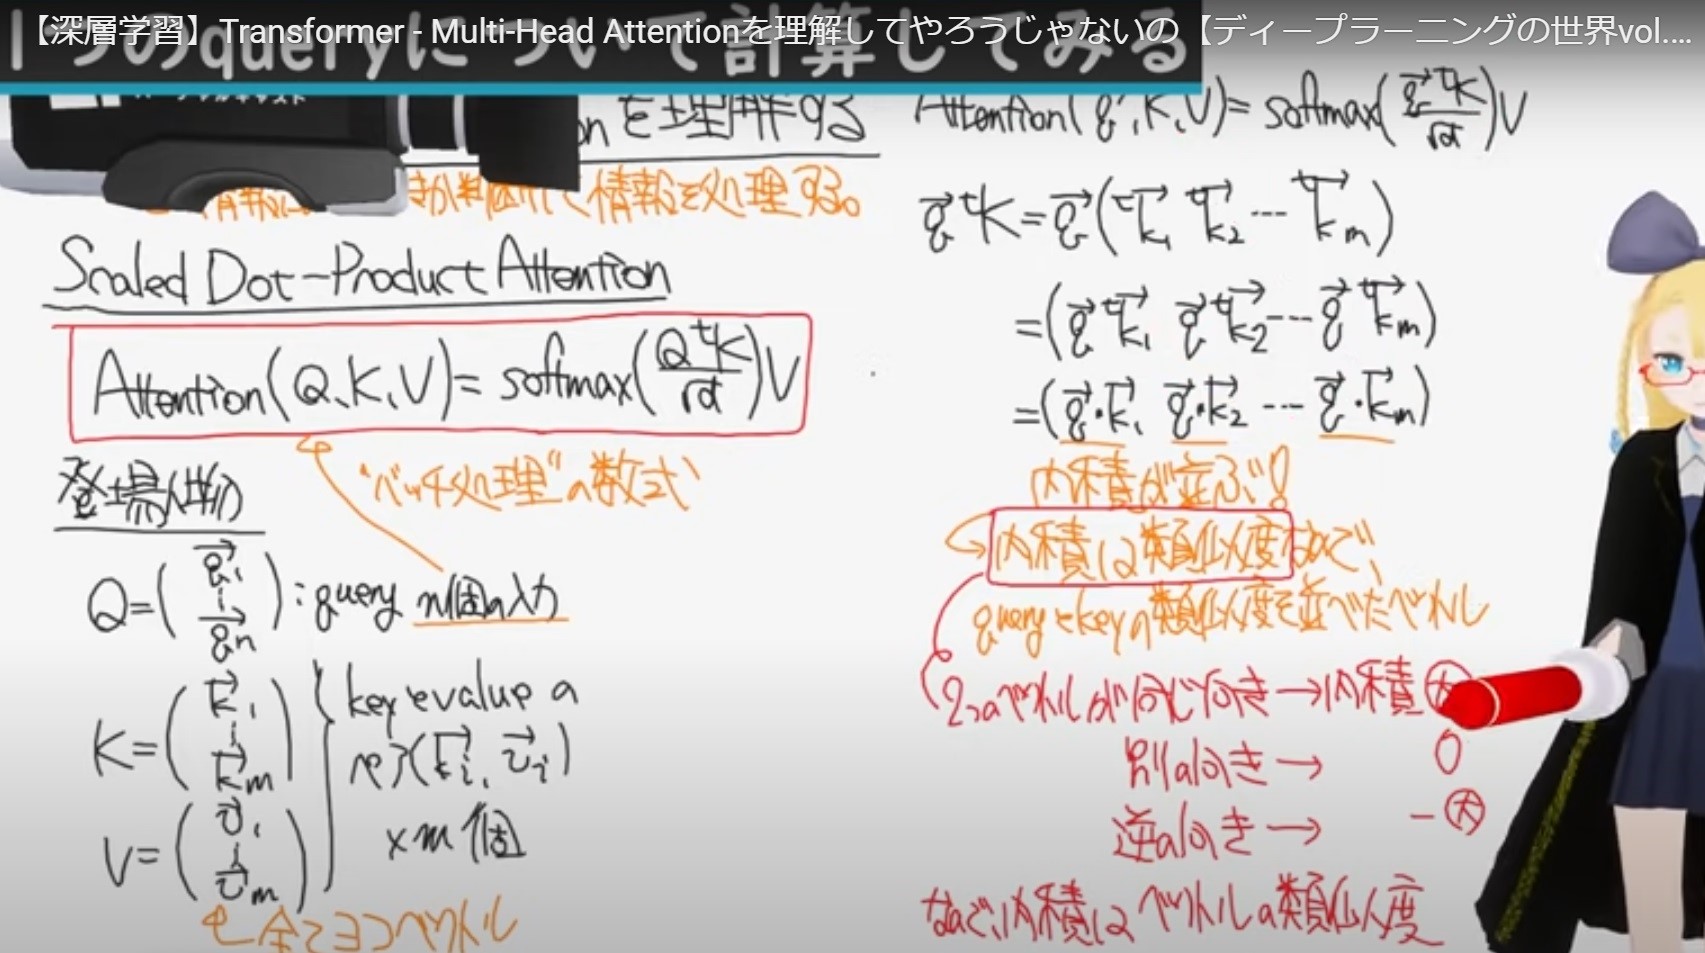 【深層学習】Transformer - Multi-Head Attentionを理解してやろうじゃないの【ディープラーニングの世界vol....
1つのqueryについて計算してみる
onを理解する
情報を処理する。
Scaled Dot-Product Attention
Attention(Q,K,V)=softmax(QᵗK/√d)V
"バッチ処理"の数式
登場人物
Q=(q⃗₁ ⋮ q⃗n):query n個の入力
K=(k⃗₁ ⋮ k⃗m)
V=(v⃗₁ ⋮ v⃗m)
keyとvalueの
ペア(k⃗i, v⃗i)
×m個
全てヨコベクトル
Attention(q⃗,K,V)=softmax(q⃗ᵗK/√d)V
q⃗ᵗK=q⃗(ᵗk⃗₁ ᵗk⃗₂ --- ᵗk⃗m)
=(q⃗ᵗk⃗₁ q⃗ᵗk⃗₂ --- q⃗ᵗk⃗m)
=(q⃗・k⃗₁ q⃗・k⃗₂ --- q⃗・k⃗m)
内積が並ぶ!
内積は類似度なので、
queryとkeyの類似度を並べたベクトル
2つのベクトルが同じ向き→内積 大
別の向き→ 0
逆の向き→ -大
なので、内積はベクトルの類似度